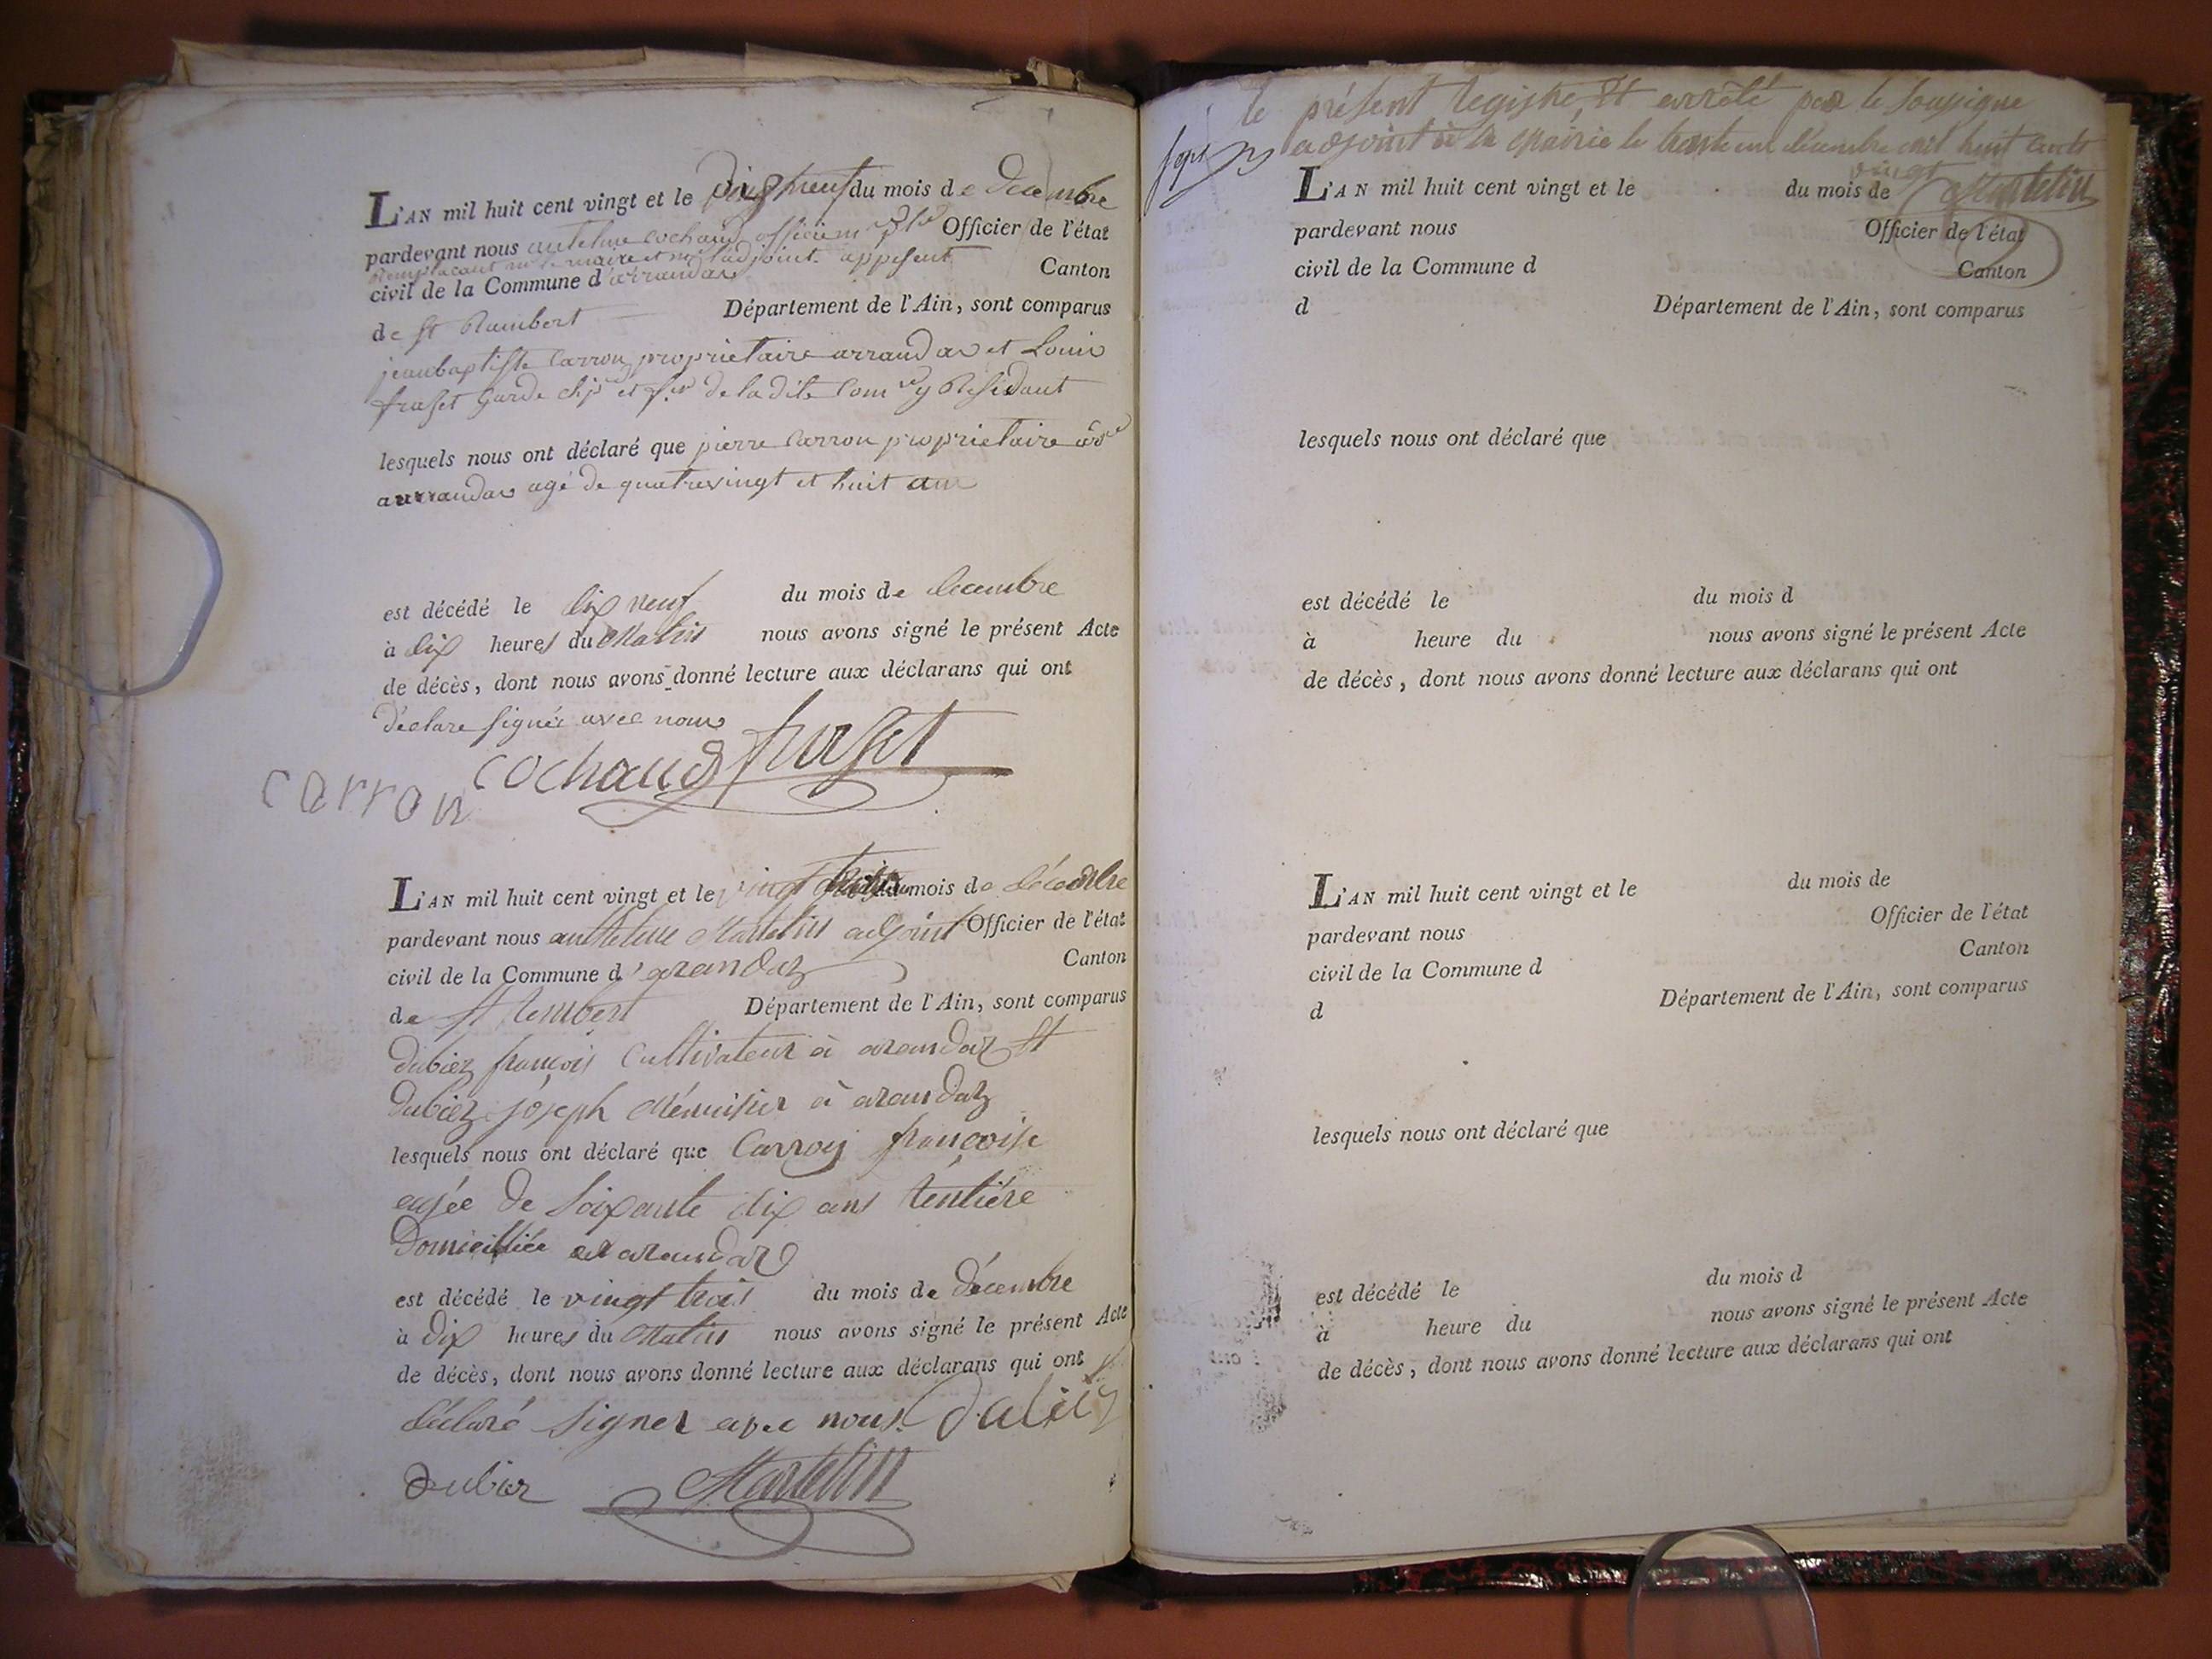 L'AN mil huit cent vingt et le Dix neuf du mois de Decembre
pardevant nous antelme cochaud officier Officier de l'état
remplacant mr le maire et mr l'adjoint
civil de la Commune d'arrandas Canton
de St Rambert Département de l'Ain, sont comparus
jeanbaptiste Carron proprietaire arrandas et Louis
fraset garde de la dite Com Residant
lesquels nous ont déclaré que pierre Carron proprietaire
arrandas agé de quatrevingt et huit ans
est décédé le dix neuf du mois de decembre
à dix heures du Matin nous avons signé le présent Acte
de décès, dont nous avons donné lecture aux déclarans qui ont
déclare signée avec nous
carron cochaud fraset
L'AN mil huit cent vingt et le vingt trois du mois de décembre
pardevant nous anthelme Martelin adjoint Officier de l'état
civil de la Commune d'arandaz Canton
de St rembert Département de l'Ain, sont comparus
dubiez françois Cultivateur à arandaz Et
dubiez joseph Ménuisier à arandaz
lesquels nous ont déclaré que Carron françoise
agée de Soixante dix ans rentiére
Domicilliée à arandaz
est décédé le vingt trois du mois de décembre
à dix heures du Matin nous avons signé le présent Acte
de décès, dont nous avons donné lecture aux déclarans qui ont
déclaré signer avec nous.
dubiez Martelin
le présent registre Et arrêté par le Soussigné
adjoint à la Mairie le trente un décembre mil huit cents
vingt Martelin
L'AN mil huit cent vingt et le du mois de
pardevant nous Officier de l'état
civil de la Commune d Canton
d Département de l'Ain, sont comparus
lesquels nous ont déclaré que
est décédé le du mois d
à heure du nous avons signé le présent Acte
de décès, dont nous avons donné lecture aux déclarans qui ont
L'AN mil huit cent vingt et le du mois de
pardevant nous Officier de l'état
civil de la Commune d Canton
d Département de l'Ain, sont comparus
lesquels nous ont déclaré que
est décédé le du mois d
à heure du nous avons signé le présent Acte
de décès, dont nous avons donné lecture aux déclarans qui ont